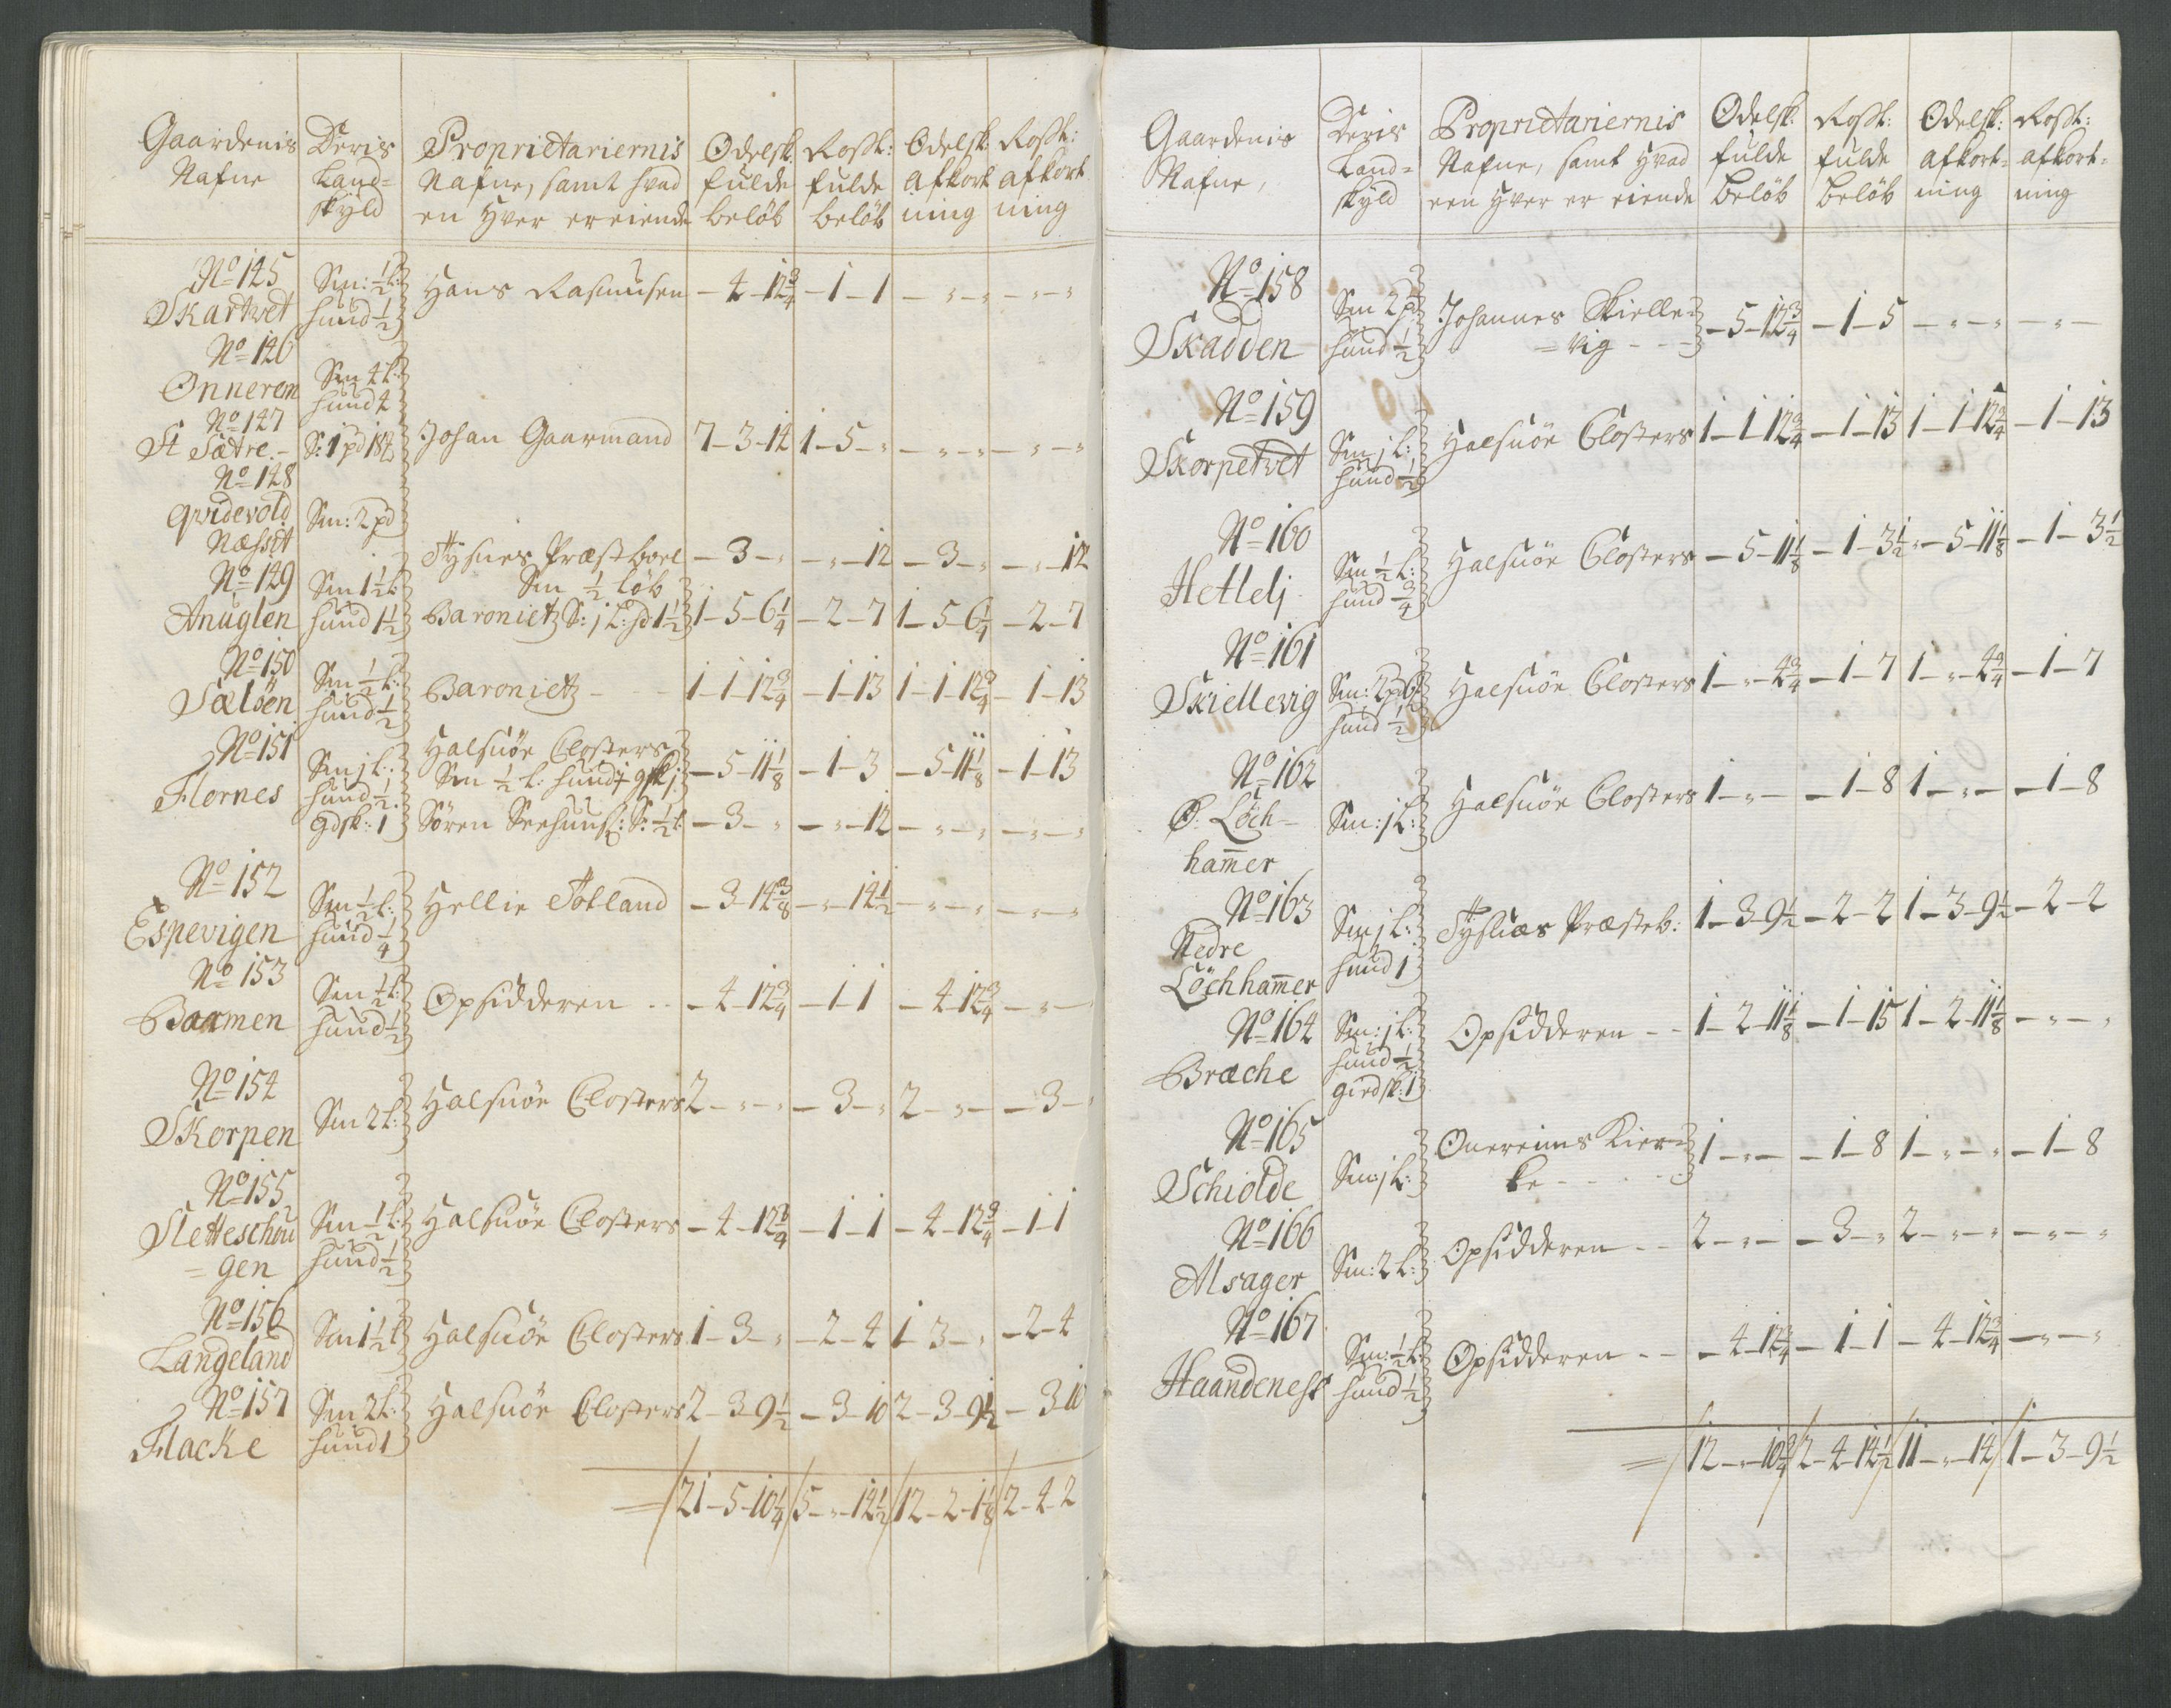 Gaardenis Nafne | Deris Land=skyld | Proprietariernis Nafne, samt hvad en hver er eiende | Odelsk: fulde beløb | Rosst: fulde beløb | Odelsk: afkortning | Rosst: afkortning
No 145
Skartvet | Sm: ½ l: hund ½ | Hans Rasmusen | – 4 – 12¾ | – 1 – 1 | – " – " | – " – "
No 146
Onnerem | Sm 4 l: hund 4
No 147
St Sætre. | S: 1 pd 18 | Johan Gaarmand | 7 – 3 – 14 | 1 – 5 – " | – " – " | – " – "
No 148
Qvidevold | Sm: 2 pd
Næsset
No 149
Anuglen | Sm 1½ l: hund 1½ | Tysnes Præstboel Sm ½ løb | – 3 – " | – " – 12 | – 3 – " | – " – 12
Baroniet S: j l: hd 1½ | 1 – 5 – 6¼ | – 2 – 7 | 1 – 5 – 6¼ | – 2 – 7
No 150
Sælöen | Sm ½ l: hund ½ | Baroniet | 1 – 1 – 12¾ | – 1 – 13 | 1 – 1 – 12¾ | – 1 – 13
No 151
Flornes | Sm j l: hund ½ gdsk: 1 | Halsnöe Closters Sm ½ l: hund ½ gsk j | – 5 – 11⅛ | – 1 – 3 | – 5 – 11⅛ | – 1 – 13
Sören Seehuus: S: ½ l: | – 3 – " | – " – 12 | – " – " | – " – "
No 152
Espevigen | Sm ½ l: hund ¼ | Hellie Totland | – 3 – 14⅜ | – " – 14½ | – " – " | – " – "
No 153
Barmen | Sm ½ l: hund ½ | Opsidderen | – 4 – 12¾ | – 1 – 1 | – 4 – 12¾ | – " –
No 154
Skorpen | Sm 2 l: | Halsnöe Closters | 2 – " – " | – 3 – " | 2 – " – | – 3 – "
No 155
Sletteschou=gen | Sm ½ l: hund ½ | Halsnöe Closters | – 4 – 12¾ | – 1 – 1 | – 4 – 12¾ | – 1 – 1
No 156
Langeland | Sm 1½ l | Halsnöe Closters | 1 – 3 – " | – 2 – 4 | 1 – 3 – " | – 2 – 4
No 157
Flacke | Sm 2 l: hund 1 | Halsnöe Closters | 2 – 3 – 9½ | – 3 – 10 | 2 – 3 – 9½ | – 3 – 10
= / 21 – 5 – 10¼ / 5 – " – 14½ / 12 – 2 – 1⅛ / 2 – 4 – 2
Gaardenis Nafne, | Deris Land=skyld | Proprietariernis Nafne, samt hvad een hver er eiende | Odelsk: fulde beløb | Rosst: fulde beløb | Odelsk: afkort=ning | Rosst: afkort=ning
No 158
Skadden | Sm 2 pd hund ½ | Johannes Skielle=vig | – 5 – 12¾ | – 1 – 5 | – " – " | – " –
No 159
Skorpetvet | Sm j l: hund ½ | Halsnöe Closters | 1 – 1 – 12¾ | – 1 – 13 | 1 – 1 – 12¾ | – 1 – 13
No 160
Hetlelj | Sm ½ l: hund ¾ | Halsnöe Closters | – 5 – 11⅛ | – 1 – 3½ | – 5 – 11⅛ | – 1 – 3½
No 161
Skiellevig | Sm: 2 pd hund ½ | Halsnöe Closters | 1 – " – 4¾ | – 1 – 7 | 1 – " – 4¾ | – 1 – 7
No 162
Ø. Löch=hamer | Sm: j l: | Halsnöe Closters | 1 – " – | – 1 – 8 | 1 – " – | – 1 – 8
No 163
Nedre Löchhamer | Sm j l: hund 1 | Tysnæs Præsteb: | 1 – 3 – 9½ | – 2 – 2 | 1 – 3 – 9½ | – 2 – 2
No 164
Bræche | Sm: j l: hund ½ girdsk: 1 | Opsidderen | 1 – 2 – 11⅛ | – 1 – 15 | 1 – 2 – 11⅛ | – " – "
No 165
Schiolde | Sm: j l: | Onereims Kier=ke | 1 – " – | – 1 – 8 | 1 – " – " | – 1 – 8
No 166
Alsager | Sm: 2 l: | Opsidderen | 2 – " – | – 3 – " | 2 – " – " | – " – "
No 167
Haandeness | Sm: ½ l: hund ½ | Opsidderen | – 4 – 12¾ | – 1 – 1 | – 4 – 12¾ | – " – "
= / 12 – " – 10¾ / 2 – 4 – 14½ / 11 – " – 14 / 1 – 3 – 9½